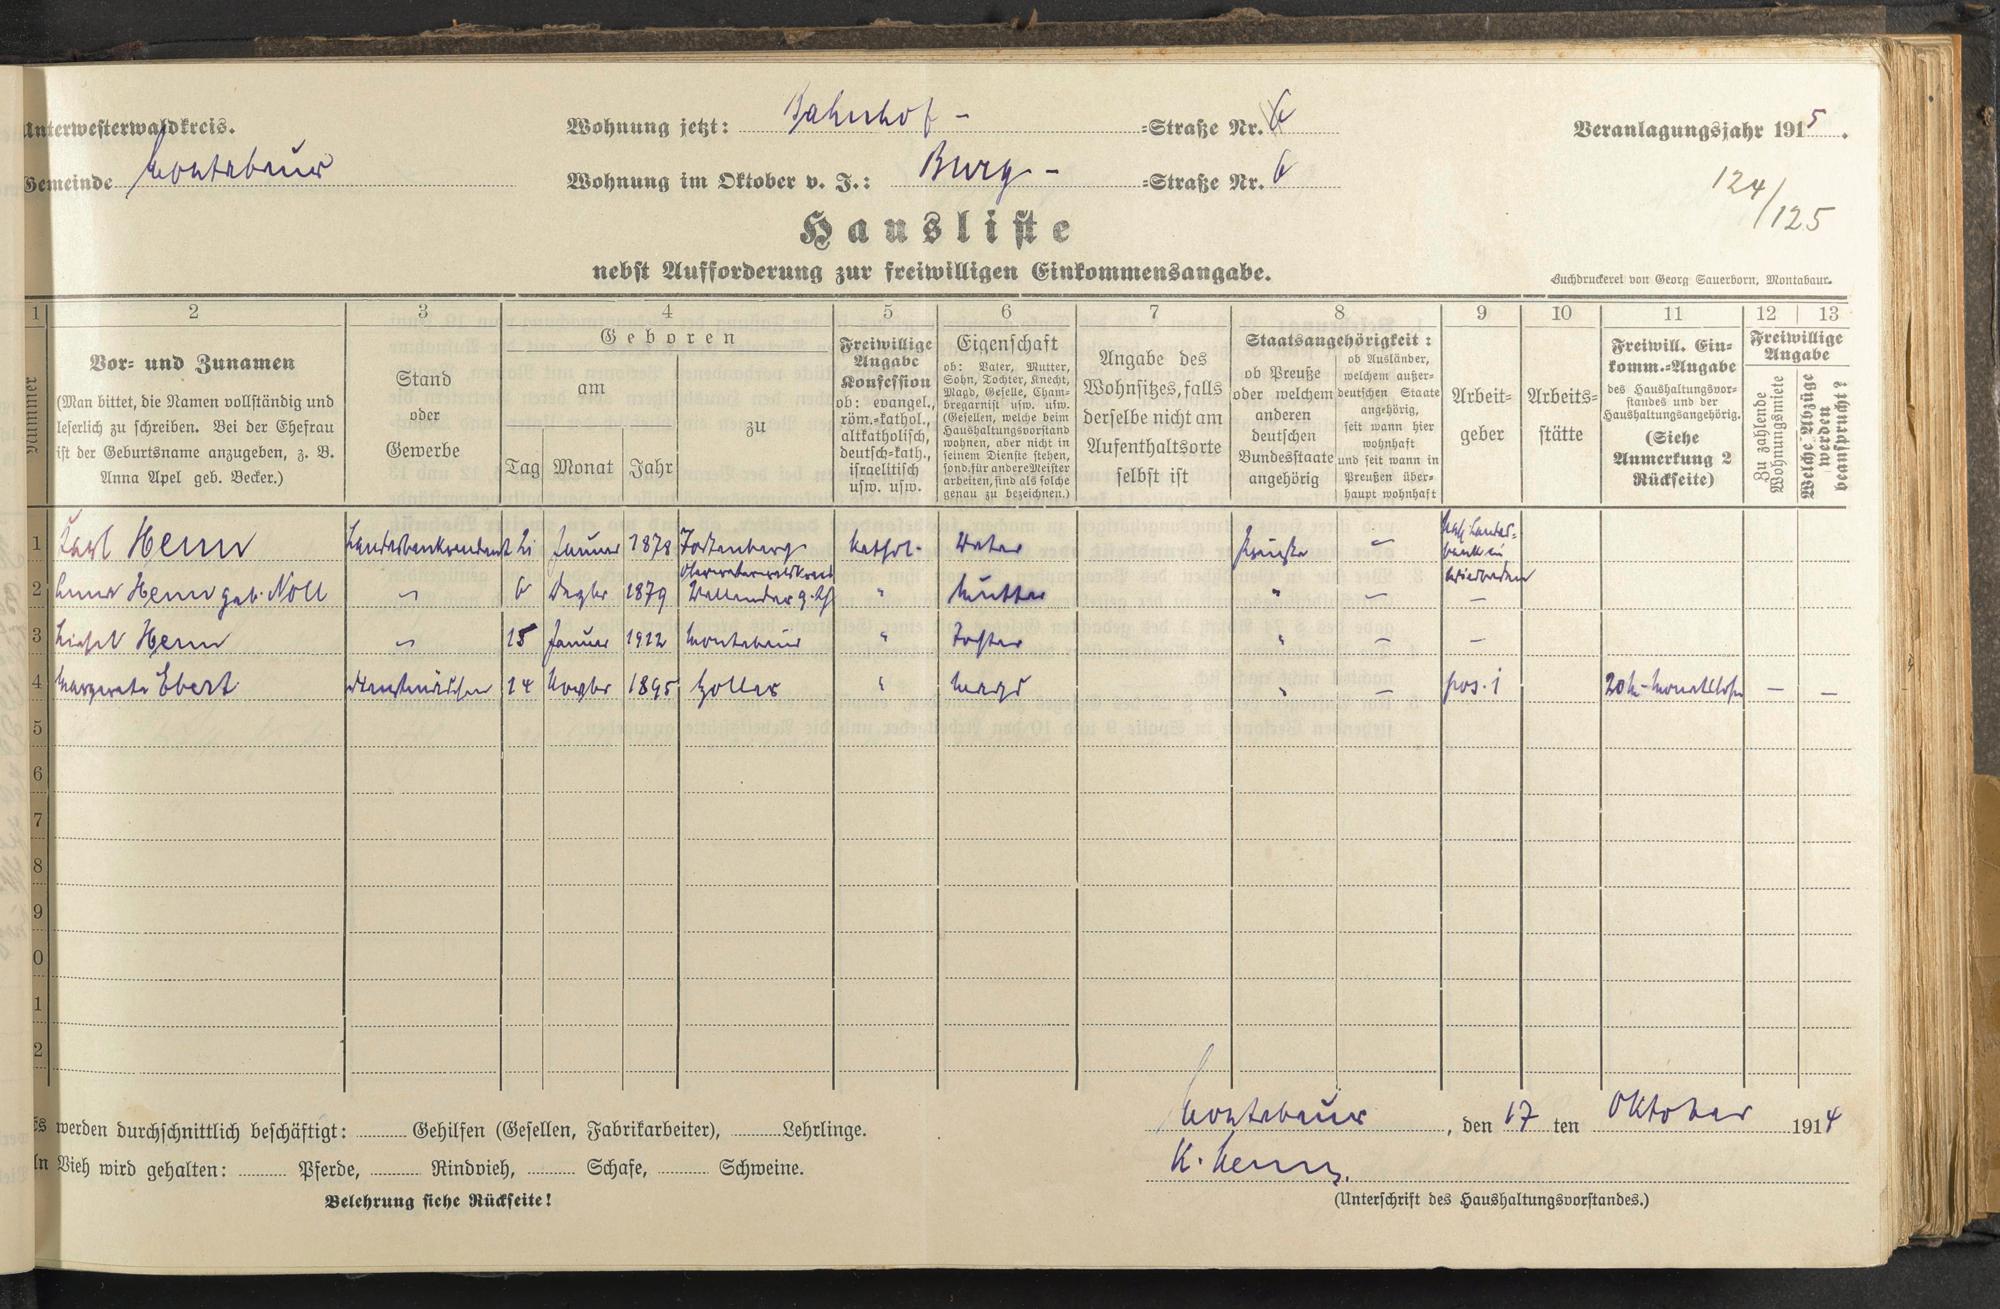 Unterwesterwaldkreis.
Wohnung jetzt: Bahnhof- =Straße Nr. 6
Veranlagungsjahr 1915.
Gemeinde Montabaur
Wohnung im Oktober v. J.: Burg- =Straße Nr. 6
124/125
Hausliste
nebst Aufforderung zur freiwilligen Einkommensangabe.
Buchdruckerei von Georg Sauerborn, Montabaur.
1 2 3 4 5 6 7 8 9 10 11 12 13
Nummer
Vor- und Zunamen
(Man bittet, die Namen vollständig und
leserlich zu schreiben. Bei der Ehefrau
ist der Geburtsname anzugeben, z. B.
Anna Apel geb. Becker.)
Stand
oder
Gewerbe
Geboren
am
Tag Monat Jahr
zu
Freiwillige
Angabe
Konfession
ob: evangel.,
röm.-kathol.,
altkatholisch,
deutsch-kath.,
israelitisch
usw. usw.
Eigenschaft
ob: Vater, Mutter,
Sohn, Tochter, Knecht,
Magd, Geselle, Cham-
bregarnist usw. usw.
(Gesellen, welche beim
Haushaltungsvorstand
wohnen, aber nicht in
seinem Dienste stehen,
sond. für andere Meister
arbeiten, sind als solche
genau zu bezeichnen.)
Angabe des
Wohnsitzes, falls
derselbe nicht am
Aufenthaltsorte
selbst ist
Staatsangehörigkeit:
ob Preuße
oder welchem
anderen
deutschen
Bundesstaate
angehörig
ob Ausländer,
welchem außer-
deutschen Staate
angehörig,
seit wann hier
wohnhaft
und seit wann in
Preußen über-
haupt wohnhaft
Arbeit-
geber
Arbeits-
stätte
Freiwill. Ein-
komm.-Angabe
des Haushaltungsvor-
standes und der
Haushaltungsangehörig.
(Siehe
Anmerkung 2
Rückseite)
Freiwillige
Angabe
Zu zahlende
Wohnungsmiete
Welche Abzüge
werden
beansprucht?
1 Karl Henn Landesbankrendant 21 Januar 1878 kathol. Vater Preuße - Nass. Landes-
bank in
Wiesbaden
2 Anna Henn geb. Noll - 6 Dezbr 1879 " Mutter " - -
3 Liesel Henn - 15 Januar 1912 Montabaur " Tochter " - -
4 Margareta Ebert Dienstmädchen 14 Novbr 1895 Holler " Magd " - pos. 1 20 M. Monatslohn - -
5
6
7
8
9
0
1
2
Es werden durchschnittlich beschäftigt: Gehilfen (Gesellen, Fabrikarbeiter), Lehrlinge.
An Vieh wird gehalten: Pferde, Rindvieh, Schafe, Schweine.
Belehrung siehe Rückseite!
Montabaur, den 17 ten Oktober 1914
K. Henn.
(Unterschrift des Haushaltungsvorstandes.)